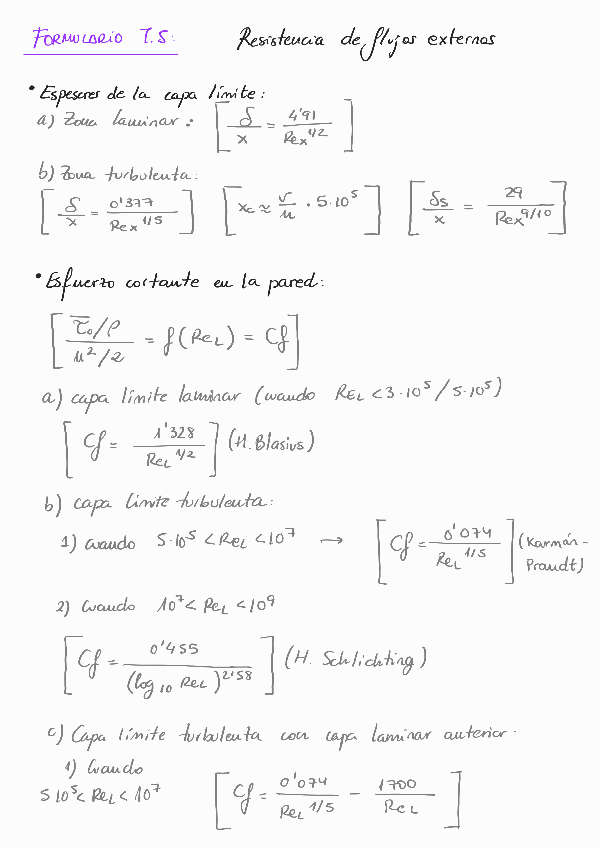 FORMULARIO T.5: Resistencia de flujos externos
• Espesores de la capa límite:
a) Zona laminar: [δ/x = 4'91/Reₓ^1/2]
b) Zona turbulenta:
[δ/x = 0'377/Reₓ^1/5] [xc ≈ ν/u · 5·10⁵] [δs/x = 29/Reₓ^9/10]
• Esfuerzo cortante en la pared:
[τ̄₀/ρ / u²/2 = f(ReL) = Cf]
a) capa límite laminar (cuando REL < 3·10⁵ / 5·10⁵)
[Cf = 1'328/ReL^1/2] (H. Blasius)
b) capa límite turbulenta:
1) cuando 5·10⁵ < ReL < 10⁷ → [Cf = 0'074/ReL^1/5] (Karmán-Prandt)
2) Cuando 10⁷ < ReL < 10⁹
[Cf = 0'455/(log₁₀ ReL)^2'58] (H. Schlichting)
c) Capa límite turbulenta con capa laminar anterior:
1) Cuando
5 10⁵ < ReL < 10⁷ [Cf = 0'074/ReL^1/5 - 1700/ReL]